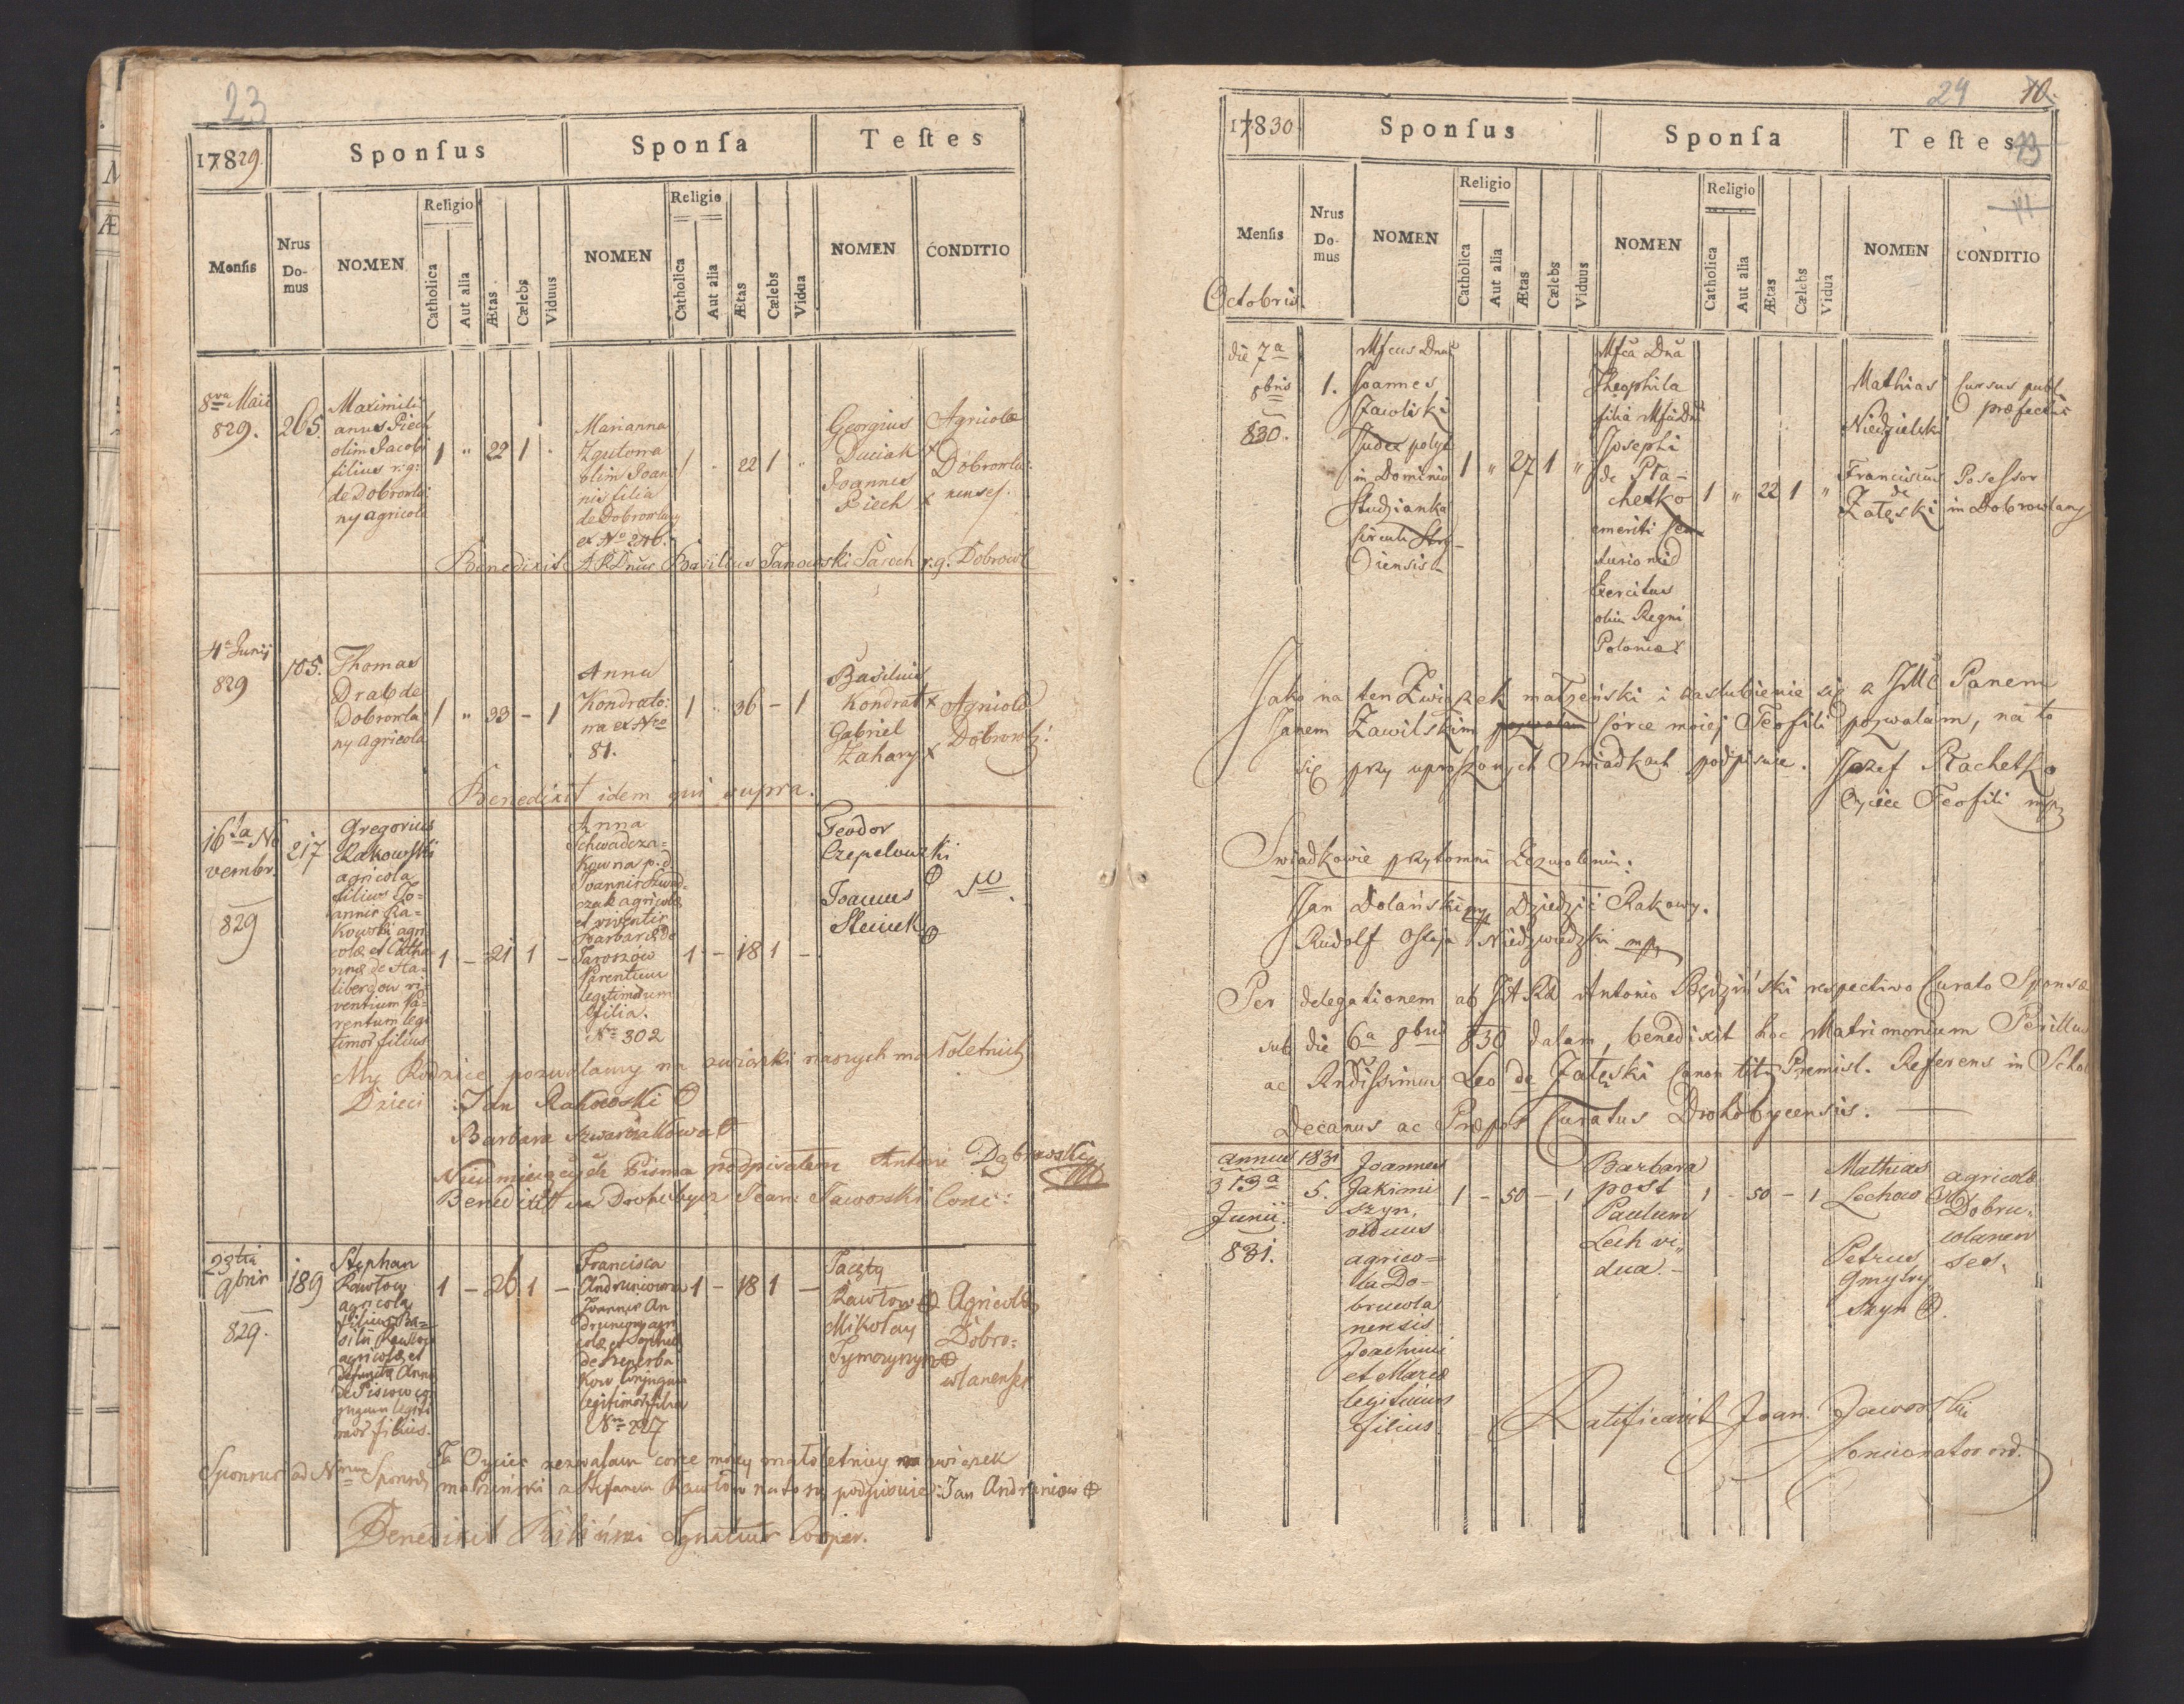 23
17829.
Sponſus
Sponſa
Teſtes
Menſis
Nrus Do-mus
NOMEN
Religio
Catholica
Aut alia
Ætas
Cælebs
Viduus
NOMEN
Religio
Catholica
Aut alia
Ætas
Cælebs
Vidua
NOMEN
CONDITIO
8va Maii
829.
265.
Maximili
anus Piech
olim Jacobi
filius r. g.
de Dobrowla
ny agricola
1 " 22 1 "
Marianna
olim Joan
nis filia
de Dobrowlany
ex No 246.
1 - 22 1 "
Georgius
Duciak x
Joannes
Piech x
Agricolæ
Dobrowla:
nenses.
Benedixit A. R. Dnus Basilius Janowski Paroch r. g. Dobrowl
4a Junij
829
105.
Thomas
Drab de
Dobrowla
ny Agricola
1 " 33 - 1
Anna
Kondrato:
wa ex Nro
81.
1 " 36 - 1
Basilius
Kondrat x
Gabriel
Zahary x
Agricolæ
Dobrowl:
Benedixit idem qui supra.
16ta No
vembr.
829
217
Gregorius
Rakowski
agricola
filius Jo=
annis Ra=
kowski agri
colæ et Catha
rinæ de Ha=
libergow vi
ventium Pa=
rentum legi
timor filius
1 - 21 1 -
Anna
Schwadcza=
kowna p. d.
Joannis Szwad=
czak agricolæ
et viventis
Barbaræ de
Jaroszów
Parentum
legitimorum
filia.
Nro 302
1 - 18 1 -
Teodor
Czepelowski
Joannes
My Rodzice pozwalamy na zwiąski naszych małoletnich
Dzieci Jan Rakowski
Barbara Szwarczakowa
Nieumieiących Pisma podpisałem Antoni Dąbrowski
Benedixit in Drohobycz Joan: Jaworski Conc:
23tia
9bris
829.
189
Stephan
Rawłow
agricola
filius Ba=
silii Rawłow
agricolæ et
defuncta Anna
gum legiti
mor filius.
1 - 26 1 -
Francisca
Andruniowna
Joannis An
druniow agri
colæ et Sophiæ
de Szczerba
kow conjugum
legitimor filia
Nro 227
1 - 18 1 -
Jaczty
Rawłow
Mikołay
Tymczyszyn
Agricolæ
Dobro=
wlanenses
Ja Oyciec zezwalam corce moiey małoletniey na zwiąsek
Sponsus ad Nrum Sponsæ małżeński z Stefanem Rawłow na to się podpisuię: Jan Andruniow
Benedixit Ignatius Cooper.
24 10.
17830
Sponſus
Sponſa
Teſtes
13
11
Menſis
Nrus Do-mus
NOMEN
Religio
Catholica
Aut alia
Ætas
Cælebs
Viduus
NOMEN
Religio
Catholica
Aut alia
Ætas
Cælebs
Vidua
NOMEN
CONDITIO
Octobris.
die 7a
8bris
830.
1.
Mfcus Dnus
Joannes
Zawilski
Judex polit
in Dominio
Studzianka
Circuli Stry
iensis
1 " 27 1 "
Mfca Dna
Theophila
filia Mfci Dni
Josephi
de Pła-
chetko
emeriti Cen
turionis
Exercitus
olim Regni
Poloniæ
1 " 22 1 "
Mathias
Niedzielski
Franciscus
de
Załęski
Cursus publ
præfectus
Possessor
in Dobrowlany
Jako na ten Związek małżeński i zaslubienie się z JMC Panem
Janem Zawilskim pozwalam Córce moiej Teofili pozwalam, na to
się przy uproszonych Swiadkach podpisuie. Jozef Płachetko
Oyciec Teofili mp
Swiadkowie przytomni Zezwoleniu:
Jan Dolański mp Dziedzic Rakowy.
Rudolf Ostoja Niedzwiedzki mp
Per delegationem ab JARD Antonio Będziński respectivo Curato Sponsæ
sub die 6a 8bris 830 datam, benedixit hoc Matrimonium Perillus
ac Rndissimus Leo de Załęski Canon titl Premisl. Referens in Schol
Decanus ac Præpos Curatus Drohobycensis.
Annus 1831
13a
Junii.
831.
5.
Joannes
Jakimi
szyn,
viduus
agrico=
la Do-
browla
nensis
Joachimi
et Mariæ
legitimus
filius
1 - 50 - 1
Barbara
post
Paulum
Lech vi
dua. -
1 - 50 - 1
Mathias
Lechow
Petrus
Gmytry
szyn
agricolæ
Dobru:
wlanen
ses.
Ratificavit Joan. Jaworski
Concionator ord.